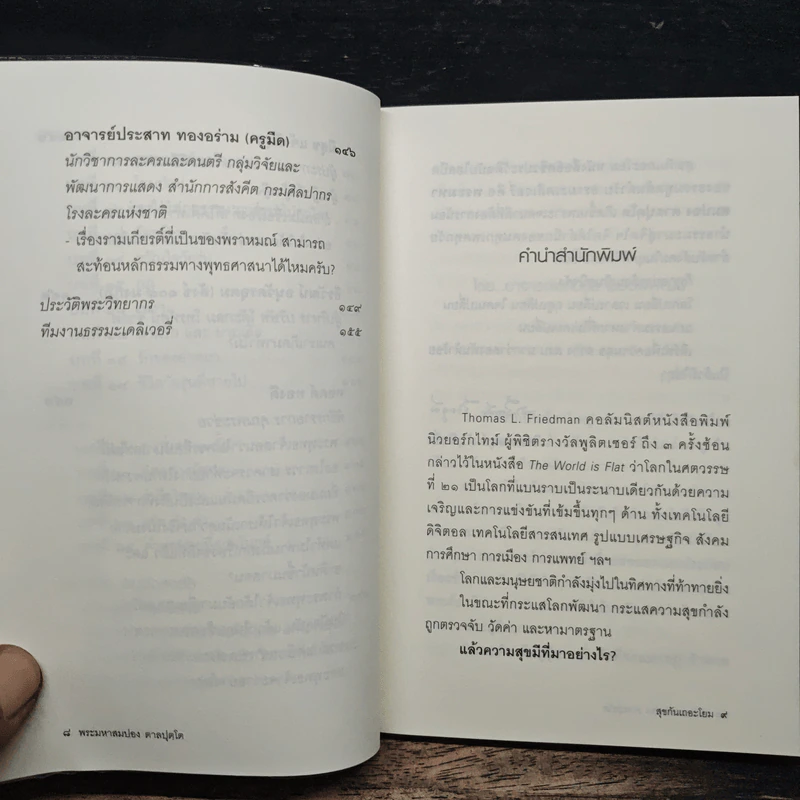 อาจารย์ประสาท ทองอร่าม (ครูมืด) ๑๔๖
นักวิชาการละครและดนตรี กลุ่มวิจัยและ
พัฒนาการแสดง สำนักการสังคีต กรมศิลปากร
โรงละครแห่งชาติ
- เรื่องรามเกียรติ์ที่เป็นของพราหมณ์ สามารถ
สะท้อนหลักธรรมทางพุทธศาสนาได้ไหมครับ?
ประวัติพระวิทยากร ๑๔๙
ทีมงานธรรมะเดลิเวอรี่ ๑๕๕
๘ พระมหาสมปอง ตาลปุตฺโต
คำนำสำนักพิมพ์
Thomas L. Friedman คอลัมนิสต์หนังสือพิมพ์
นิวยอร์กไทม์ ผู้พิชิตรางวัลพูลิตเซอร์ ถึง ๓ ครั้งซ้อน
กล่าวไว้ในหนังสือ The World is Flat ว่าโลกในศตวรรษ
ที่ ๒๑ เป็นโลกที่แบนราบเป็นระนาบเดียวกันด้วยความ
เจริญและการแข่งขันที่เข้มขึ้นทุกๆ ด้าน ทั้งเทคโนโลยี
ดิจิตอล เทคโนโลยีสารสนเทศ รูปแบบเศรษฐกิจ สังคม
การศึกษา การเมือง การแพทย์ ฯลฯ
โลกและมนุษยชาติกำลังมุ่งไปในทิศทางที่ท้าทายยิ่ง
ในขณะที่กระแสโลกพัฒนา กระแสความสุขกำลัง
ถูกตรวจจับ วัดค่า และหามาตรฐาน
แล้วความสุขมีที่มาอย่างไร?
สุขกันเถอะโยม ๙